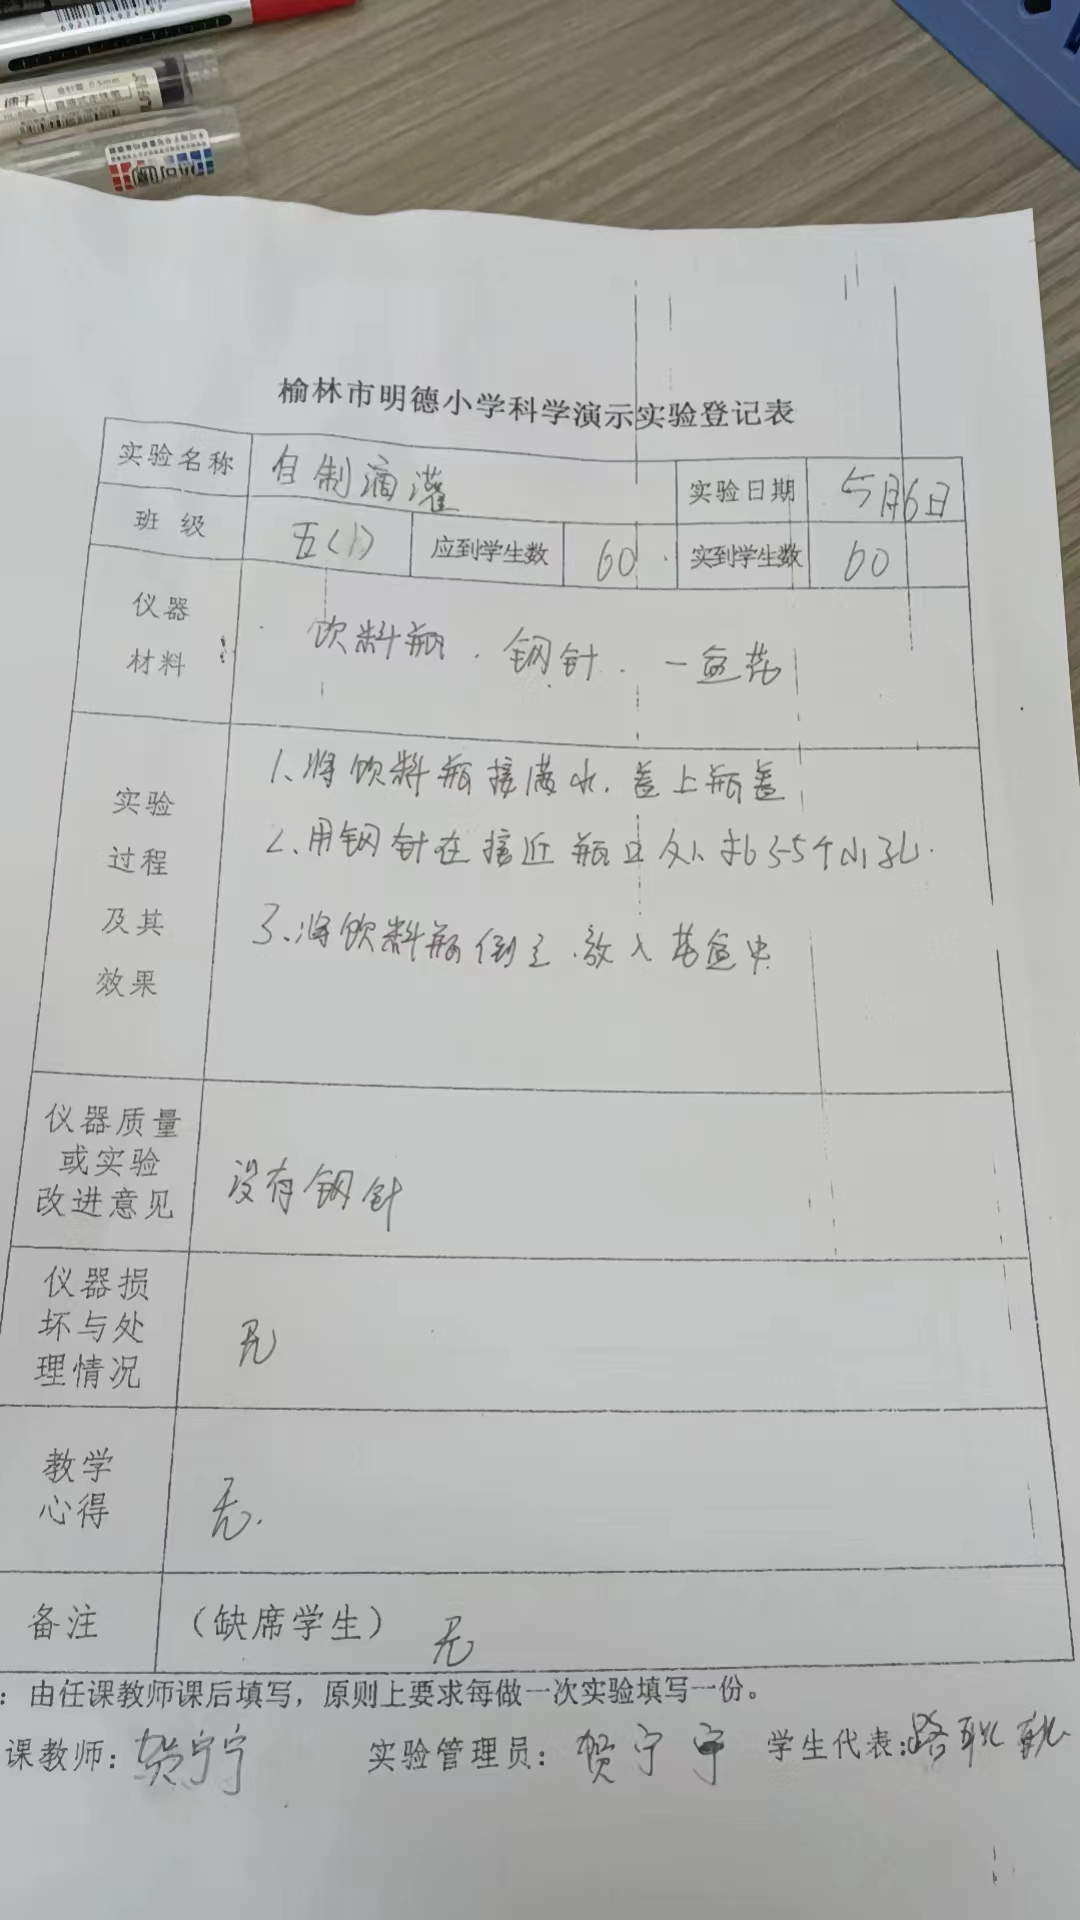 6921734924797
0.5mm
榆林市明德小学科学演示实验登记表
实验名称 自制滴灌 实验日期 5月6日
班 级 五(1) 应到学生数 60 实到学生数 60
仪器
材料
饮料瓶、钢针、一盆花
实验
过程
及其
效果
1、将饮料瓶接满水,盖上瓶盖
2、用钢针在接近瓶口处扎3-5个小孔.
3、将饮料瓶倒立,放入花盆中
仪器质量
或实验
改进意见
没有钢针
仪器损
坏与处
理情况
无
教学
心得
无.
备注 (缺席学生) 无
:由任课教师课后填写,原则上要求每做一次实验填写一份。
课教师:贺宁宁 实验管理员:贺宁宁 学生代表:路